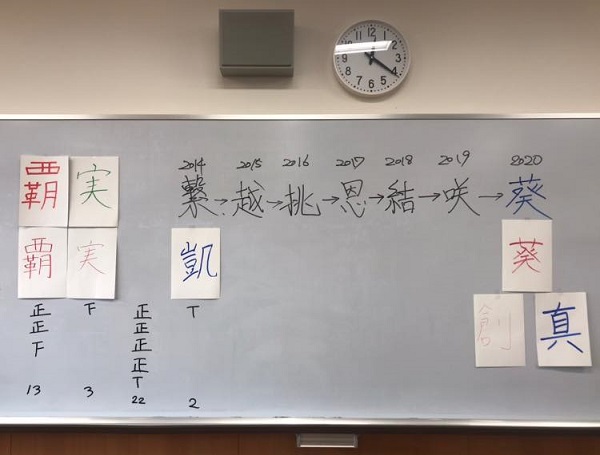 12 1 2 3 4 5 6 7 8 9 10 11
2014 2015 2016 2017 2018 2019 2020
繋→越→挑→恩→結→咲→葵
覇 実
覇 実
凱
葵
創 真
正正下
13
下
3
正正正正T
22
T
2